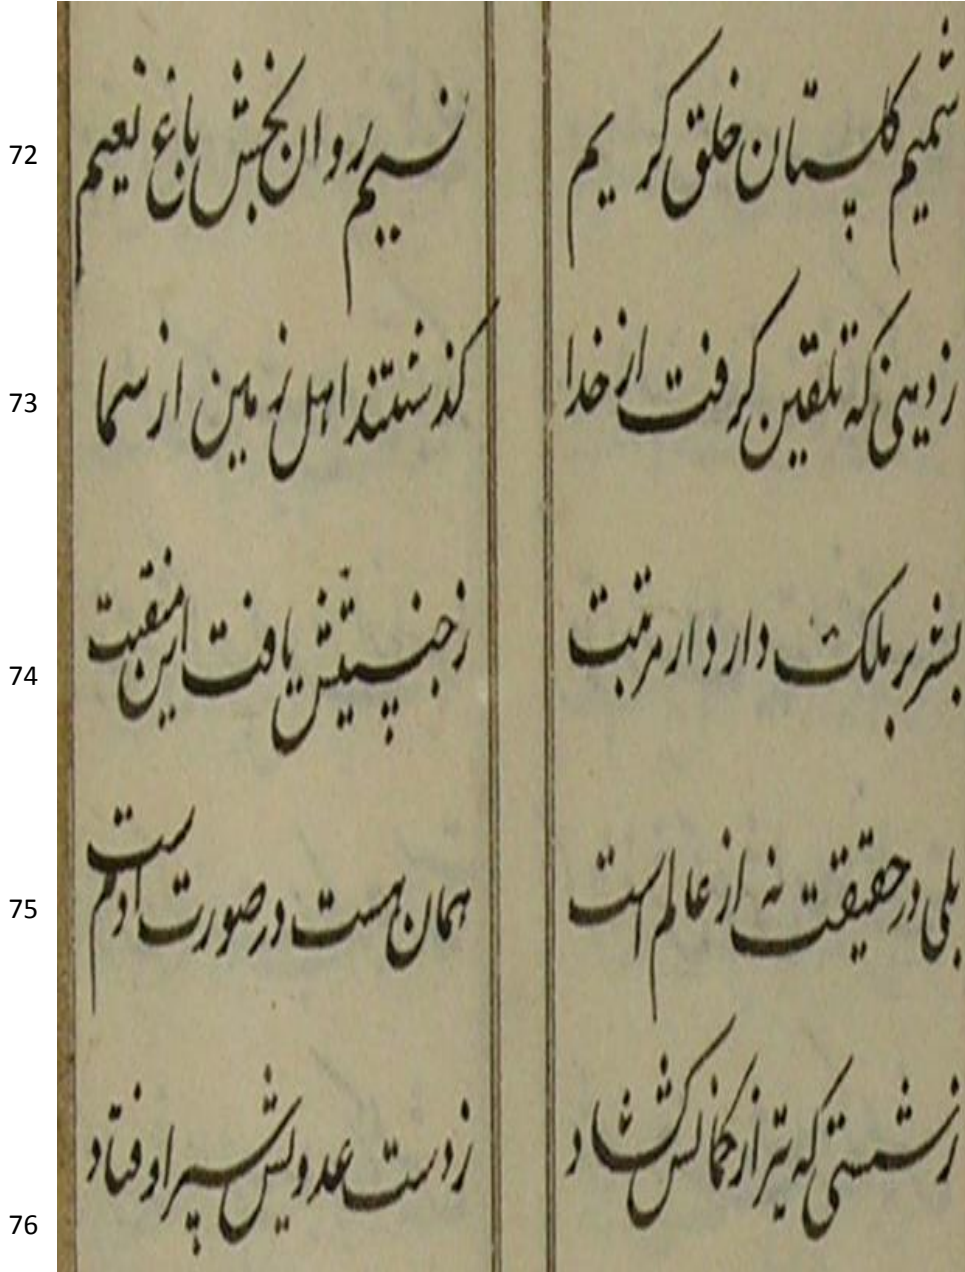 72 شمیم کلستان خلق کریم نسیم روان بخش باغ نعیم
73 ز دینی که تلقین کرفت از خدا کذشتند اهل زمین از سما
74 بشر بر ملک دارد ار مرتبت ز جنسیتش یافت این منقبت
75 بلی در حقیقت نه از عالم است همان هست در صورت آدم است
76 ز شستی که تیر از کمانش کشاد ز دست عدویش سپر اوفتاد